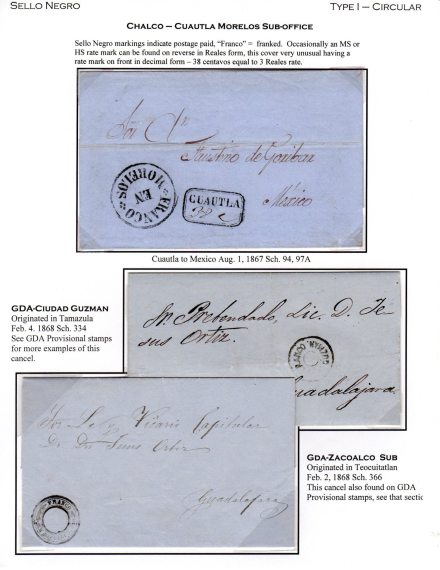 SELLO NEGRO
TYPE I – CIRCULAR
CHALCO – CUAUTLA MORELOS SUB-OFFICE
Sello Negro markings indicate postage paid, “Franco” = franked. Occasionally an MS or
HS rate mark can be found on reverse in Reales form, this cover very unusual having a
rate mark on front in decimal form – 38 centavos equal to 3 Reales rate.
de
FRANCO EN MORELOS
CUAUTLA
México
Cuautla to Mexico Aug. 1, 1867 Sch. 94, 97A
GDA-CIUDAD GUZMAN
Originated in Tamazula
Feb. 4. 1868 Sch. 334
See GDA Provisional stamps
for more examples of this
cancel.
Sr. Prebendado, Lic. D. Je-
sus Ortiz.
Guadalajara.
Vicario Capitular
Ortiz
FRANCO
GDA-ZACOALCO SUB
Originated in Teocuitatlan
Feb. 2, 1868 Sch. 366
This cancel also found on GDA
Provisional stamps, see that sectic